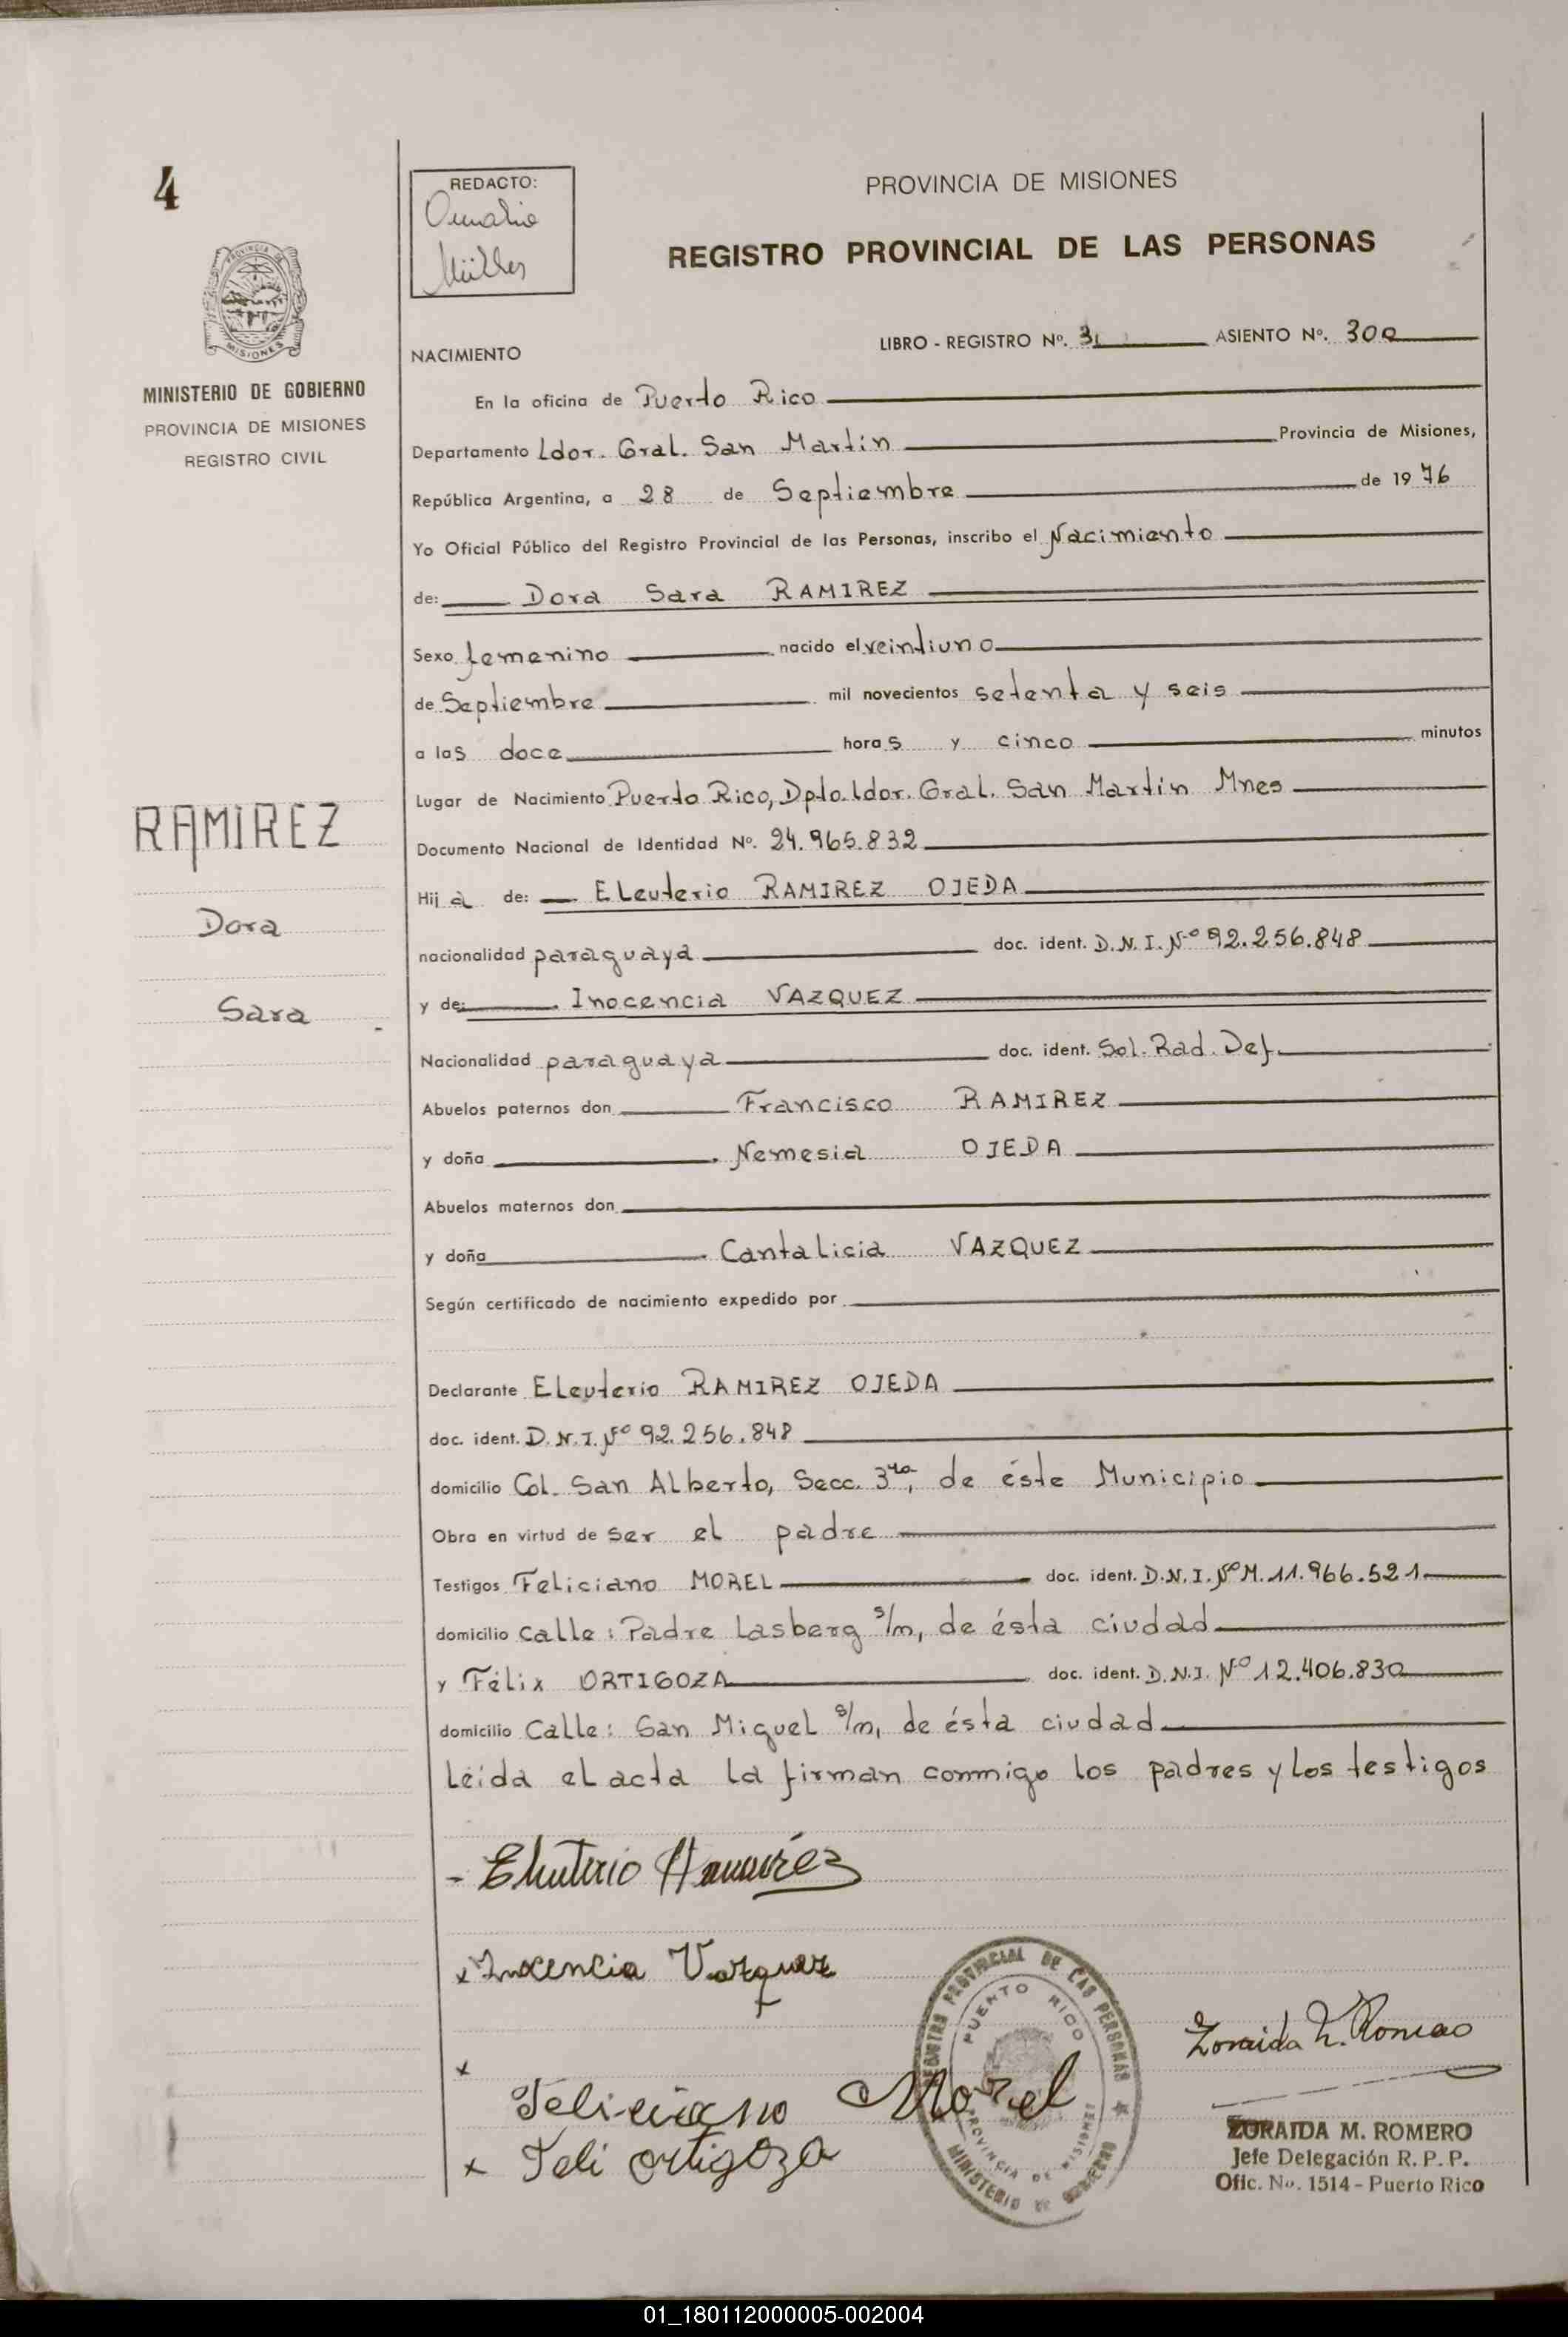 4
REDACTO:
PROVINCIA DE MISIONES
REGISTRO PROVINCIAL DE LAS PERSONAS
PROVINCIA
MISIONES
MINISTERIO DE GOBIERNO
PROVINCIA DE MISIONES
REGISTRO CIVIL
LIBRO - REGISTRO Nº. ASIENTO Nº. 300
NACIMIENTO
En la oficina de Puerto Rico
Departamento Ldor. Gral. San Martín Provincia de Misiones,
República Argentina, a 28 de Septiembre de 1976
Yo Oficial Público del Registro Provincial de las Personas, inscribo el Nacimiento
de: Dora Sara RAMIREZ
Sexo femenino nacido el veintiuno
de Septiembre mil novecientos setenta y seis
a las doce horas y cinco minutos
Lugar de Nacimiento Puerto Rico, Dpto. Ldor. Gral. San Martín Mnes
RAMIREZ
Documento Nacional de Identidad Nº. 24.965.832
Hija de: Eleuterio RAMIREZ OJEDA
Dora
nacionalidad paraguaya doc. ident. D.N.I. Nº 92.256.848
y de: Inocencia VAZQUEZ
Sara
Nacionalidad paraguaya doc. ident. Sol. Rad. Def.
Abuelos paternos don Francisco RAMIREZ
y doña Nemesia OJEDA
Abuelos maternos don
y doña Cantalicia VAZQUEZ
Según certificado de nacimiento expedido por
Declarante Eleuterio RAMIREZ OJEDA
doc. ident. D.N.I. Nº 92.256.848
domicilio Col. San Alberto, Secc. 3ra, de éste Municipio
Obra en virtud de ser el padre
Testigos Feliciano MOREL doc. ident. D.N.I. Nº M. 11.966.521
domicilio Calle: Padre Lasberg s/n, de ésta ciudad
y Félix ORTIGOZA doc. ident. D.N.I. Nº 12.406.830
domicilio Calle: San Miguel s/n, de ésta ciudad
Leida el acta la firman conmigo los padres y los testigos
- Eleuterio Ramírez
x Inocencia Vazquez
REGISTRO PROVINCIAL DE LAS PERSONAS
PUERTO RICO
PROVINCIA DE MISIONES
MINISTERIO DE GOBIERNO
Zoraida M. Romero
x
Feliciano Morel
x Feli ortigoza
ZORAIDA M. ROMERO
Jefe Delegación R. P. P.
Ofic. No. 1514 - Puerto Rico
01_180112000005-002004